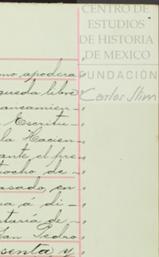 CENTRO DE
ESTUDIOS
DE HISTORIA
DE MEXICO
FUNDACIÓN
Carlos Slim
mo apodera
queda libre
Escritu-
la Hacien-
ante el pre
ocho de
asado, en
ua á di-
taría de
San Pedro
senta y